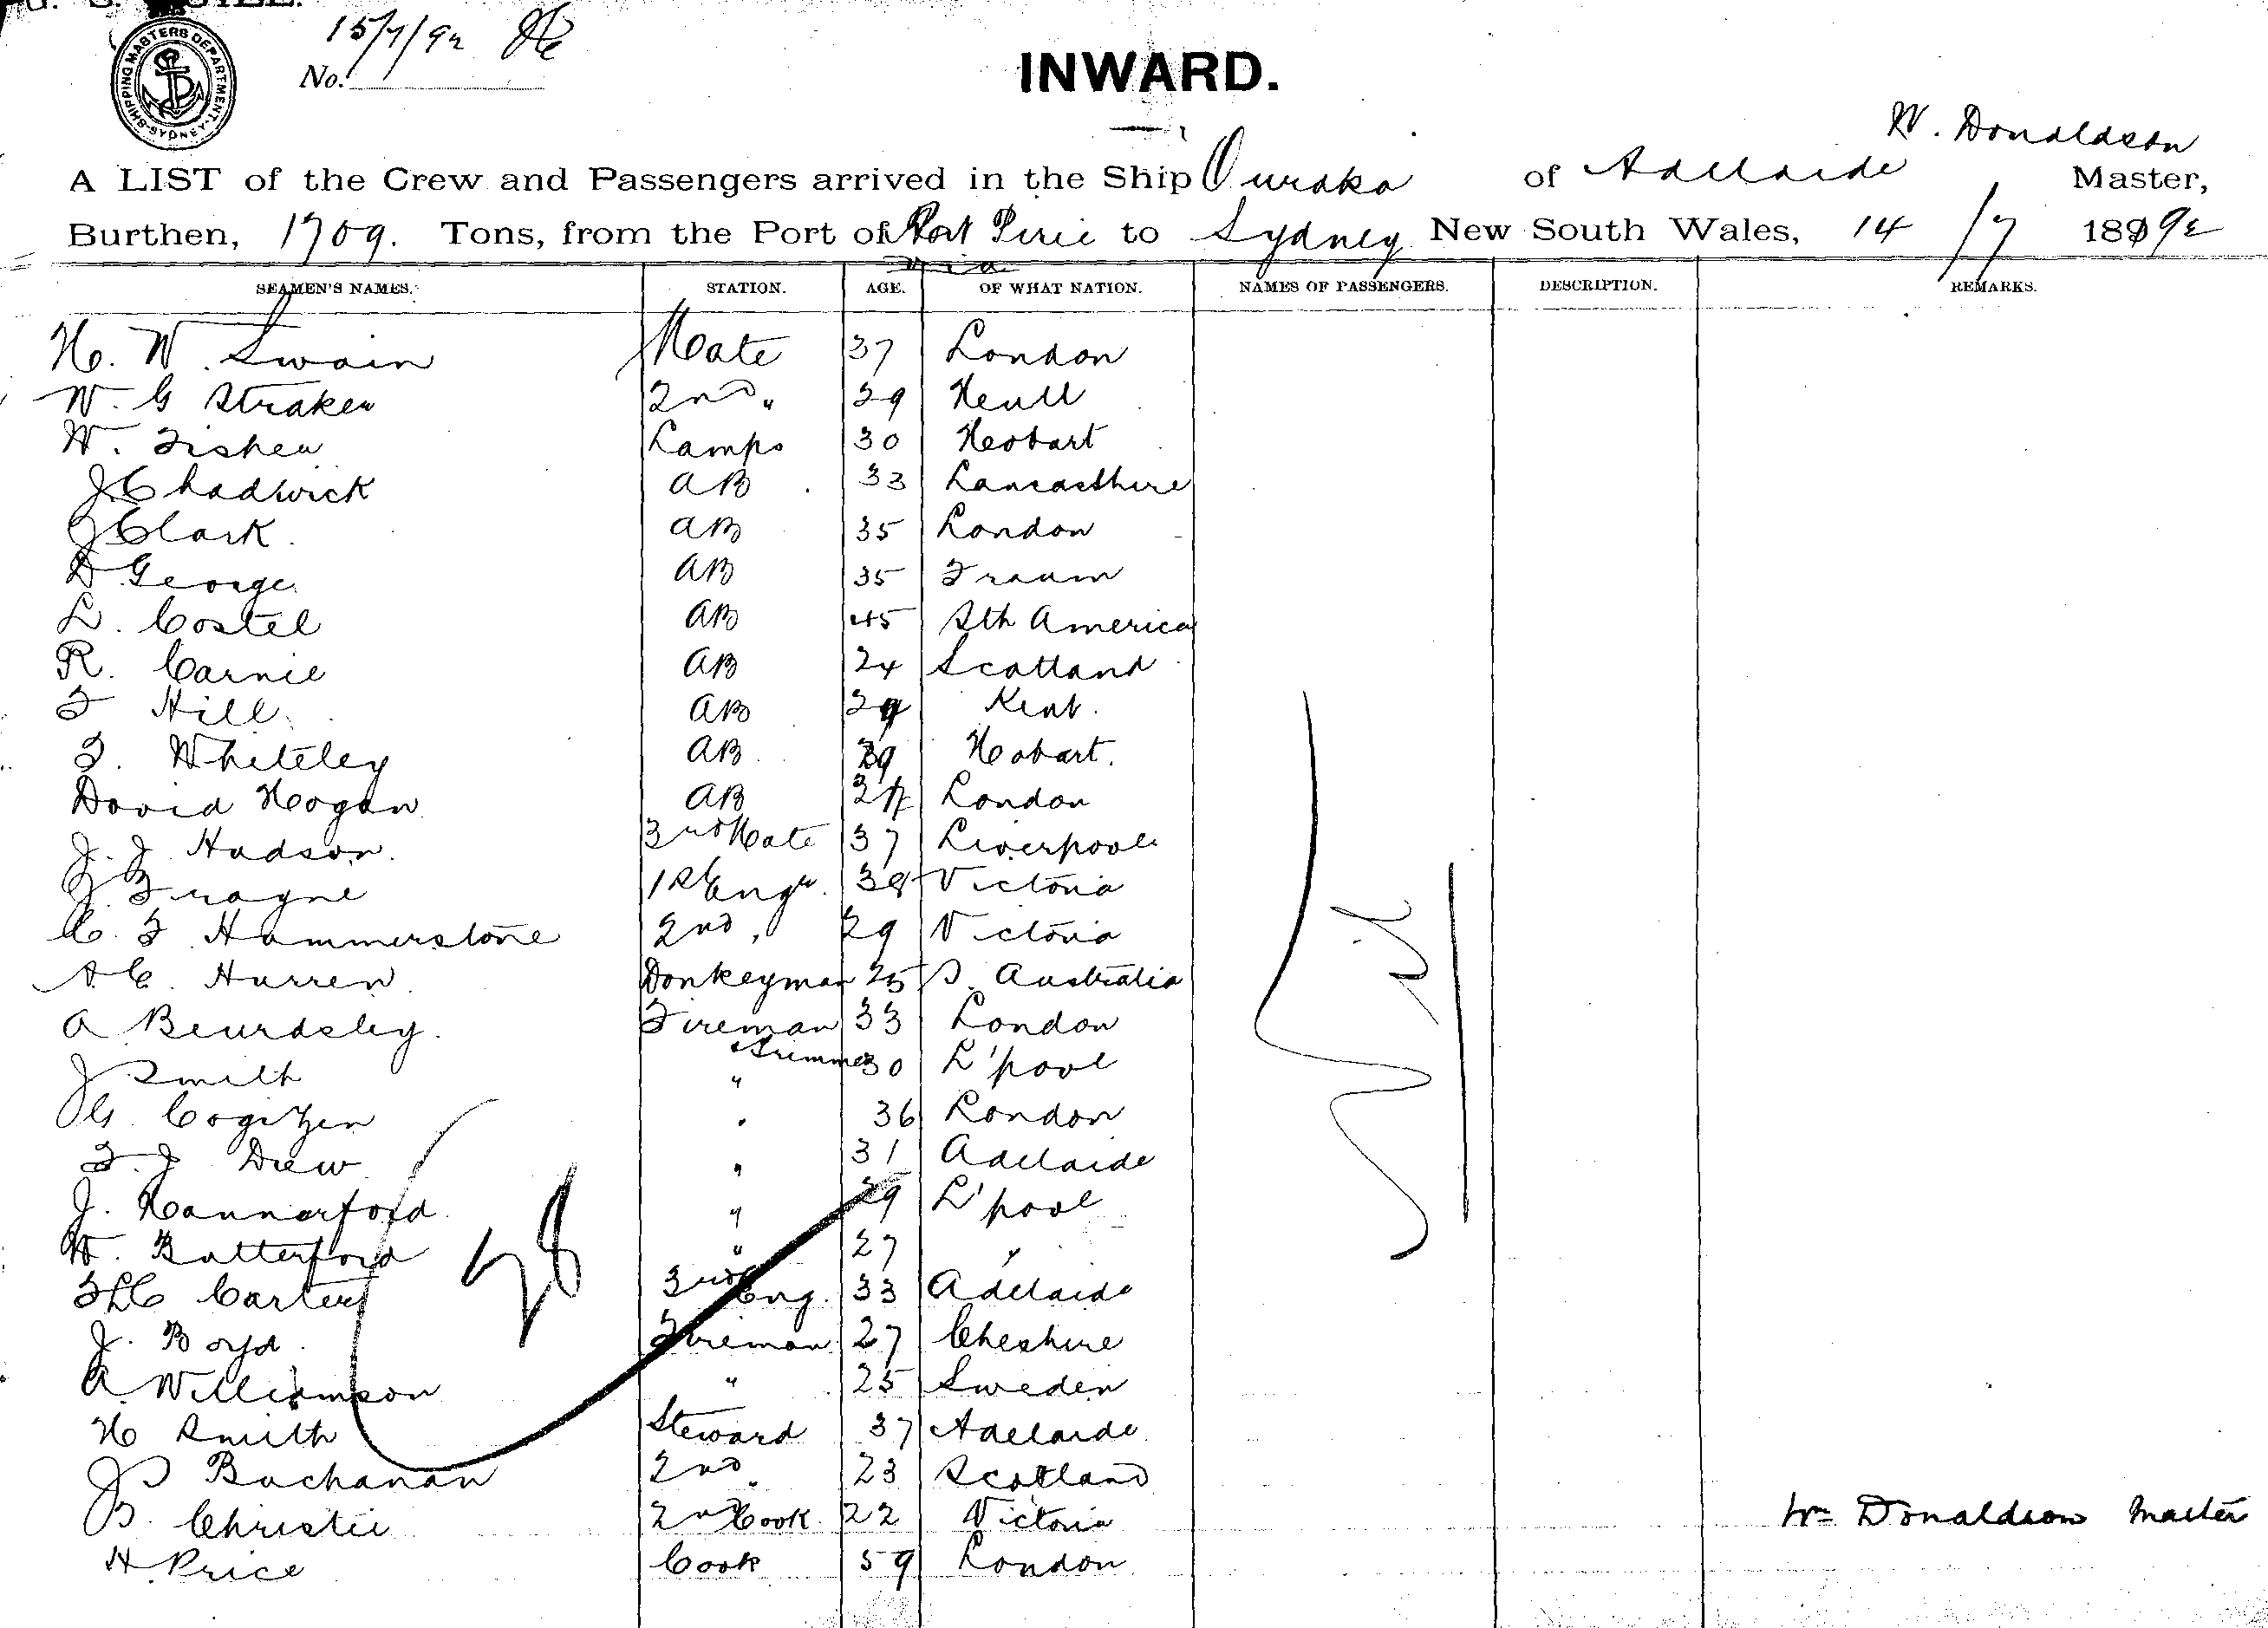 SHIPPING MASTERS DEPARTMENT SYDNEY
15/7/92
No.
INWARD.
W. Donaldson
A LIST of the Crew and Passengers arrived in the Ship Ouraka of Adelaide Master,
Burthen, 1709. Tons, from the Port of Port Pirie to Sydney New South Wales, 14/7 1892
SEAMEN'S NAMES. STATION. AGE. OF WHAT NATION. NAMES OF PASSENGERS. DESCRIPTION. REMARKS.
H. W. Swain Mate 37 London
W. G Straker 2nd " 29 Hull
W. Fisher Lamps 30 Hobart
J Chadwick AB 33 Lancasthire
J Clark. AB 35 London
D George. AB 35
L. Costel AB 45 Sth America
R. Carnie AB 24 Scotland
F Hill. AB Kent.
F. Whiteley AB 29 Hobart.
David Hogan AB London
J. J. Hudson. 3rd Mate 37 Liverpool
J. Frayne 1st Engr. 38 Victoria
C. F. Hammerstone 2nd " 29 Victoria
A C. Hurren. Donkeyman 25 S. Australia
A Beurdsley. Fireman 33 London
J Smith " & Trimmer 30 L'pool
G. " 36 London
F. J. Drew " 31 Adelaide
J. Hannarford. " 29 L'pool
W. Butterford " 27 "
F L C Carter 3rd Eng. 33 Adelaide
J. Boyd. Fireman 27 Cheshire
A Williamson " 25 Sweden
H Smith Steward 37 Adelaide
J Buchanan 2nd " 23 Scotland
B. Christie 2nd Cook. 22 Victoria
H. Price Cook 59 London
28
Nil
Wm Donaldson Master